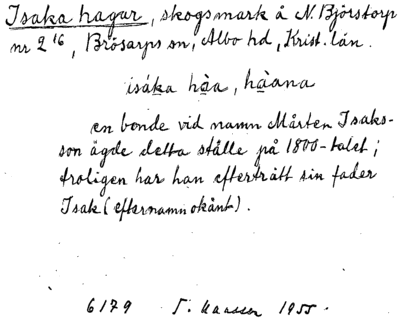 Isaka hagar, skogsmark å N. Björstorp
nr 2¹⁶, Brösarps sn, Albo hd, Krist. län.
isáka hàa, hàana
en bonde vid namn Mårten Isaks-
son ägde detta ställe på 1800-talet;
troligen har han efterträtt sin fader
Isak (efternamn okänt).
6179 1955.